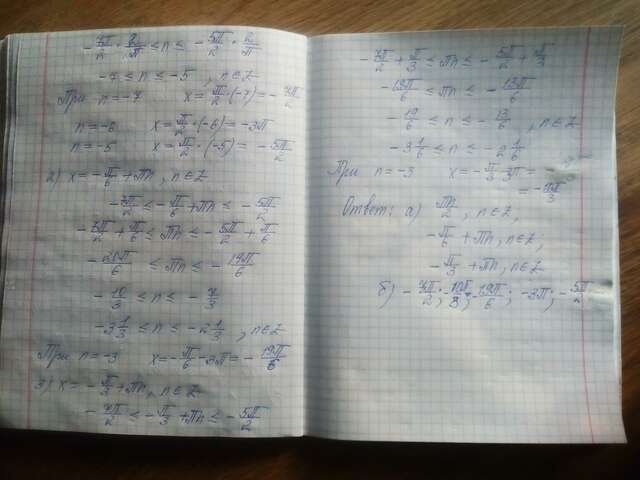 -7π/2 · 2/π ≤ n ≤ -5π/2 · 2/π
-7 ≤ n ≤ -5, n∈Z
При n=-7 x=π/2·(-7)=-7π/2
n=-6 x=π/2·(-6)=-3π
n=-5 x=π/2·(-5)=-5π/2
2) x=-π/6+πn, n∈Z
-7π/2 ≤ -π/6+πn ≤ -5π/2
-7π/2+π/6 ≤ πn ≤ -5π/2+π/6
-20π/6 ≤ πn ≤ -14π/6
-10/3 ≤ n ≤ -7/3
-3 1/3 ≤ n ≤ -2 1/3, n∈Z
При n=-3 x=-π/6-3π=-19π/6
3) x=-π/3+πn, n∈Z
-7π/2 ≤ -π/3+πn ≤ -5π/2
-7π/2+π/3 ≤ πn ≤ -5π/2+π/3
-19π/6 ≤ πn ≤ -13π/6
-19/6 ≤ n ≤ -13/6, n∈Z
-3 1/6 ≤ n ≤ -2 1/6
При n=-3 x=-π/3-3π=
=-10π/3
Ответ: а) πn/2, n∈Z,
-π/6+πn, n∈Z,
-π/3+πn, n∈Z
б) -7π/2; -10π/3; -19π/6; -3π; -5π/2